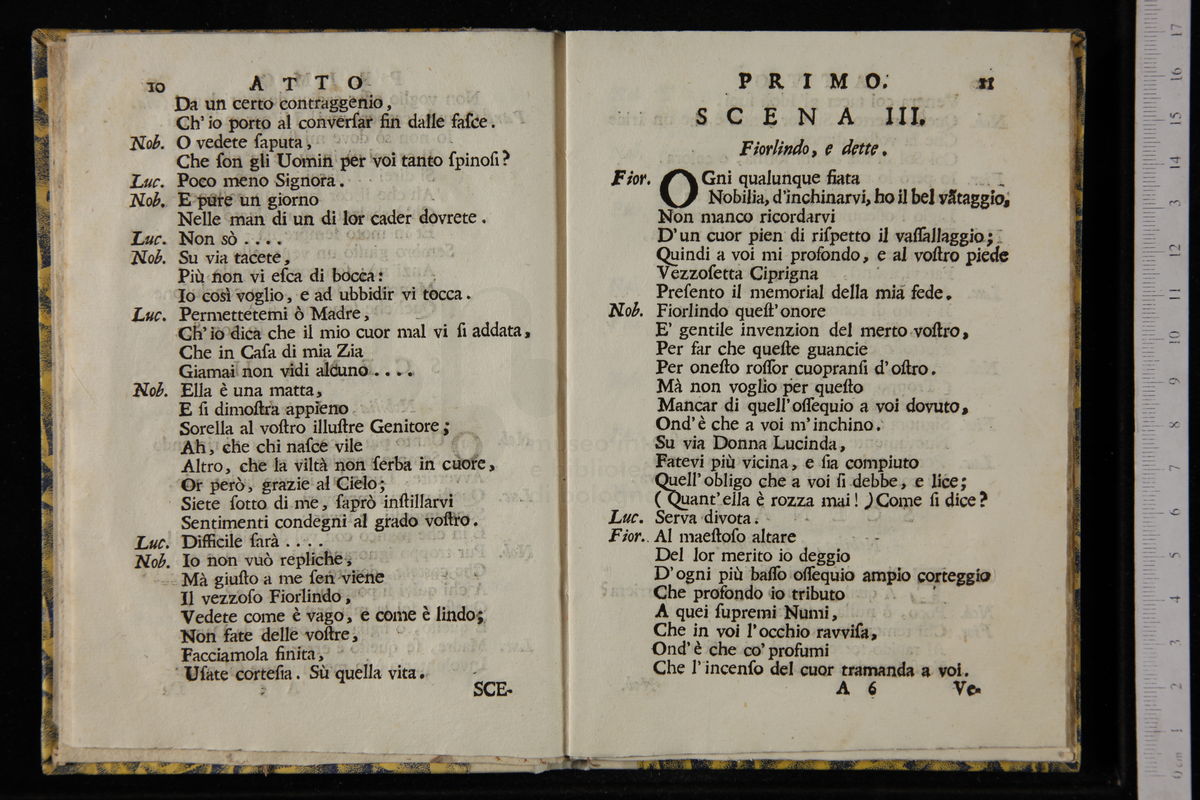 10 ATTO
Da un certo contraggenio,
Ch'io porto al converſar fin dalle faſce.
Nob. O vedete ſaputa,
Che ſon gli Uomin per voi tanto ſpinoſi?
Luc. Poco meno Signora.
Nob. E pure un giorno
Nelle man di un di lor cader dovrete.
Luc. Non sò ....
Nob. Su via tacete,
Più non vi eſca di bocca:
Io così voglio, e ad ubbidir vi tocca.
Luc. Permettetemi ò Madre,
Ch'io dica che il mio cuor mal vi ſi addata,
Che in Caſa di mia Zia
Giamai non vidi alcuno ....
Nob. Ella è una matta,
E ſi dimoſtra appieno
Sorella al voſtro illuſtre Genitore;
Ah, che chi naſce vile
Altro, che la viltà non ſerba in cuore,
Or però, grazie al Cielo;
Siete ſotto di me, ſaprò inſtillarvi
Sentimenti condegni al grado voſtro.
Luc. Difficile ſarà ....
Nob. Io non vuò repliche,
Mà giuſto a me ſen viene
Il vezzoſo Fiorlindo,
Vedete come è vago, e come è lindo;
Non fate delle voſtre,
Facciamola finita,
Uſate corteſia. Sù quella vita.
SCE-
PRIMO. 11
SCENA III.
Fiorlindo, e dette.
Fior. OGni qualunque fiata
Nobilia, d'inchinarvi, ho il bel vãtaggio,
Non manco ricordarvi
D'un cuor pien di riſpetto il vaſſallaggio;
Quindi a voi mi profondo, e al voſtro piede
Vezzoſetta Ciprigna
Preſento il memorial della mia fede.
Nob. Fiorlindo queſt'onore
E' gentile invenzion del merto voſtro,
Per far che queſte guancie
Per oneſto roſſor cuopranſi d'oſtro.
Mà non voglio per queſto
Mancar di quell'oſſequio a voi dovuto,
Ond'è che a voi m'inchino.
Su via Donna Lucinda,
Fatevi più vicina, e ſia compiuto
Quell'obligo che a voi ſi debbe, e lice;
(Quant'ella è rozza mai!) Come ſi dice?
Luc. Serva divota.
Fior. Al maeſtoſo altare
Del lor merito io deggio
D'ogni più baſſo oſſequio ampio corteggio
Che profondo io tributo
A quei ſupremi Numi,
Che in voi l'occhio ravviſa,
Ond'è che co' profumi
Che l'incenſo del cuor tramanda a voi.
A 6 Ve-